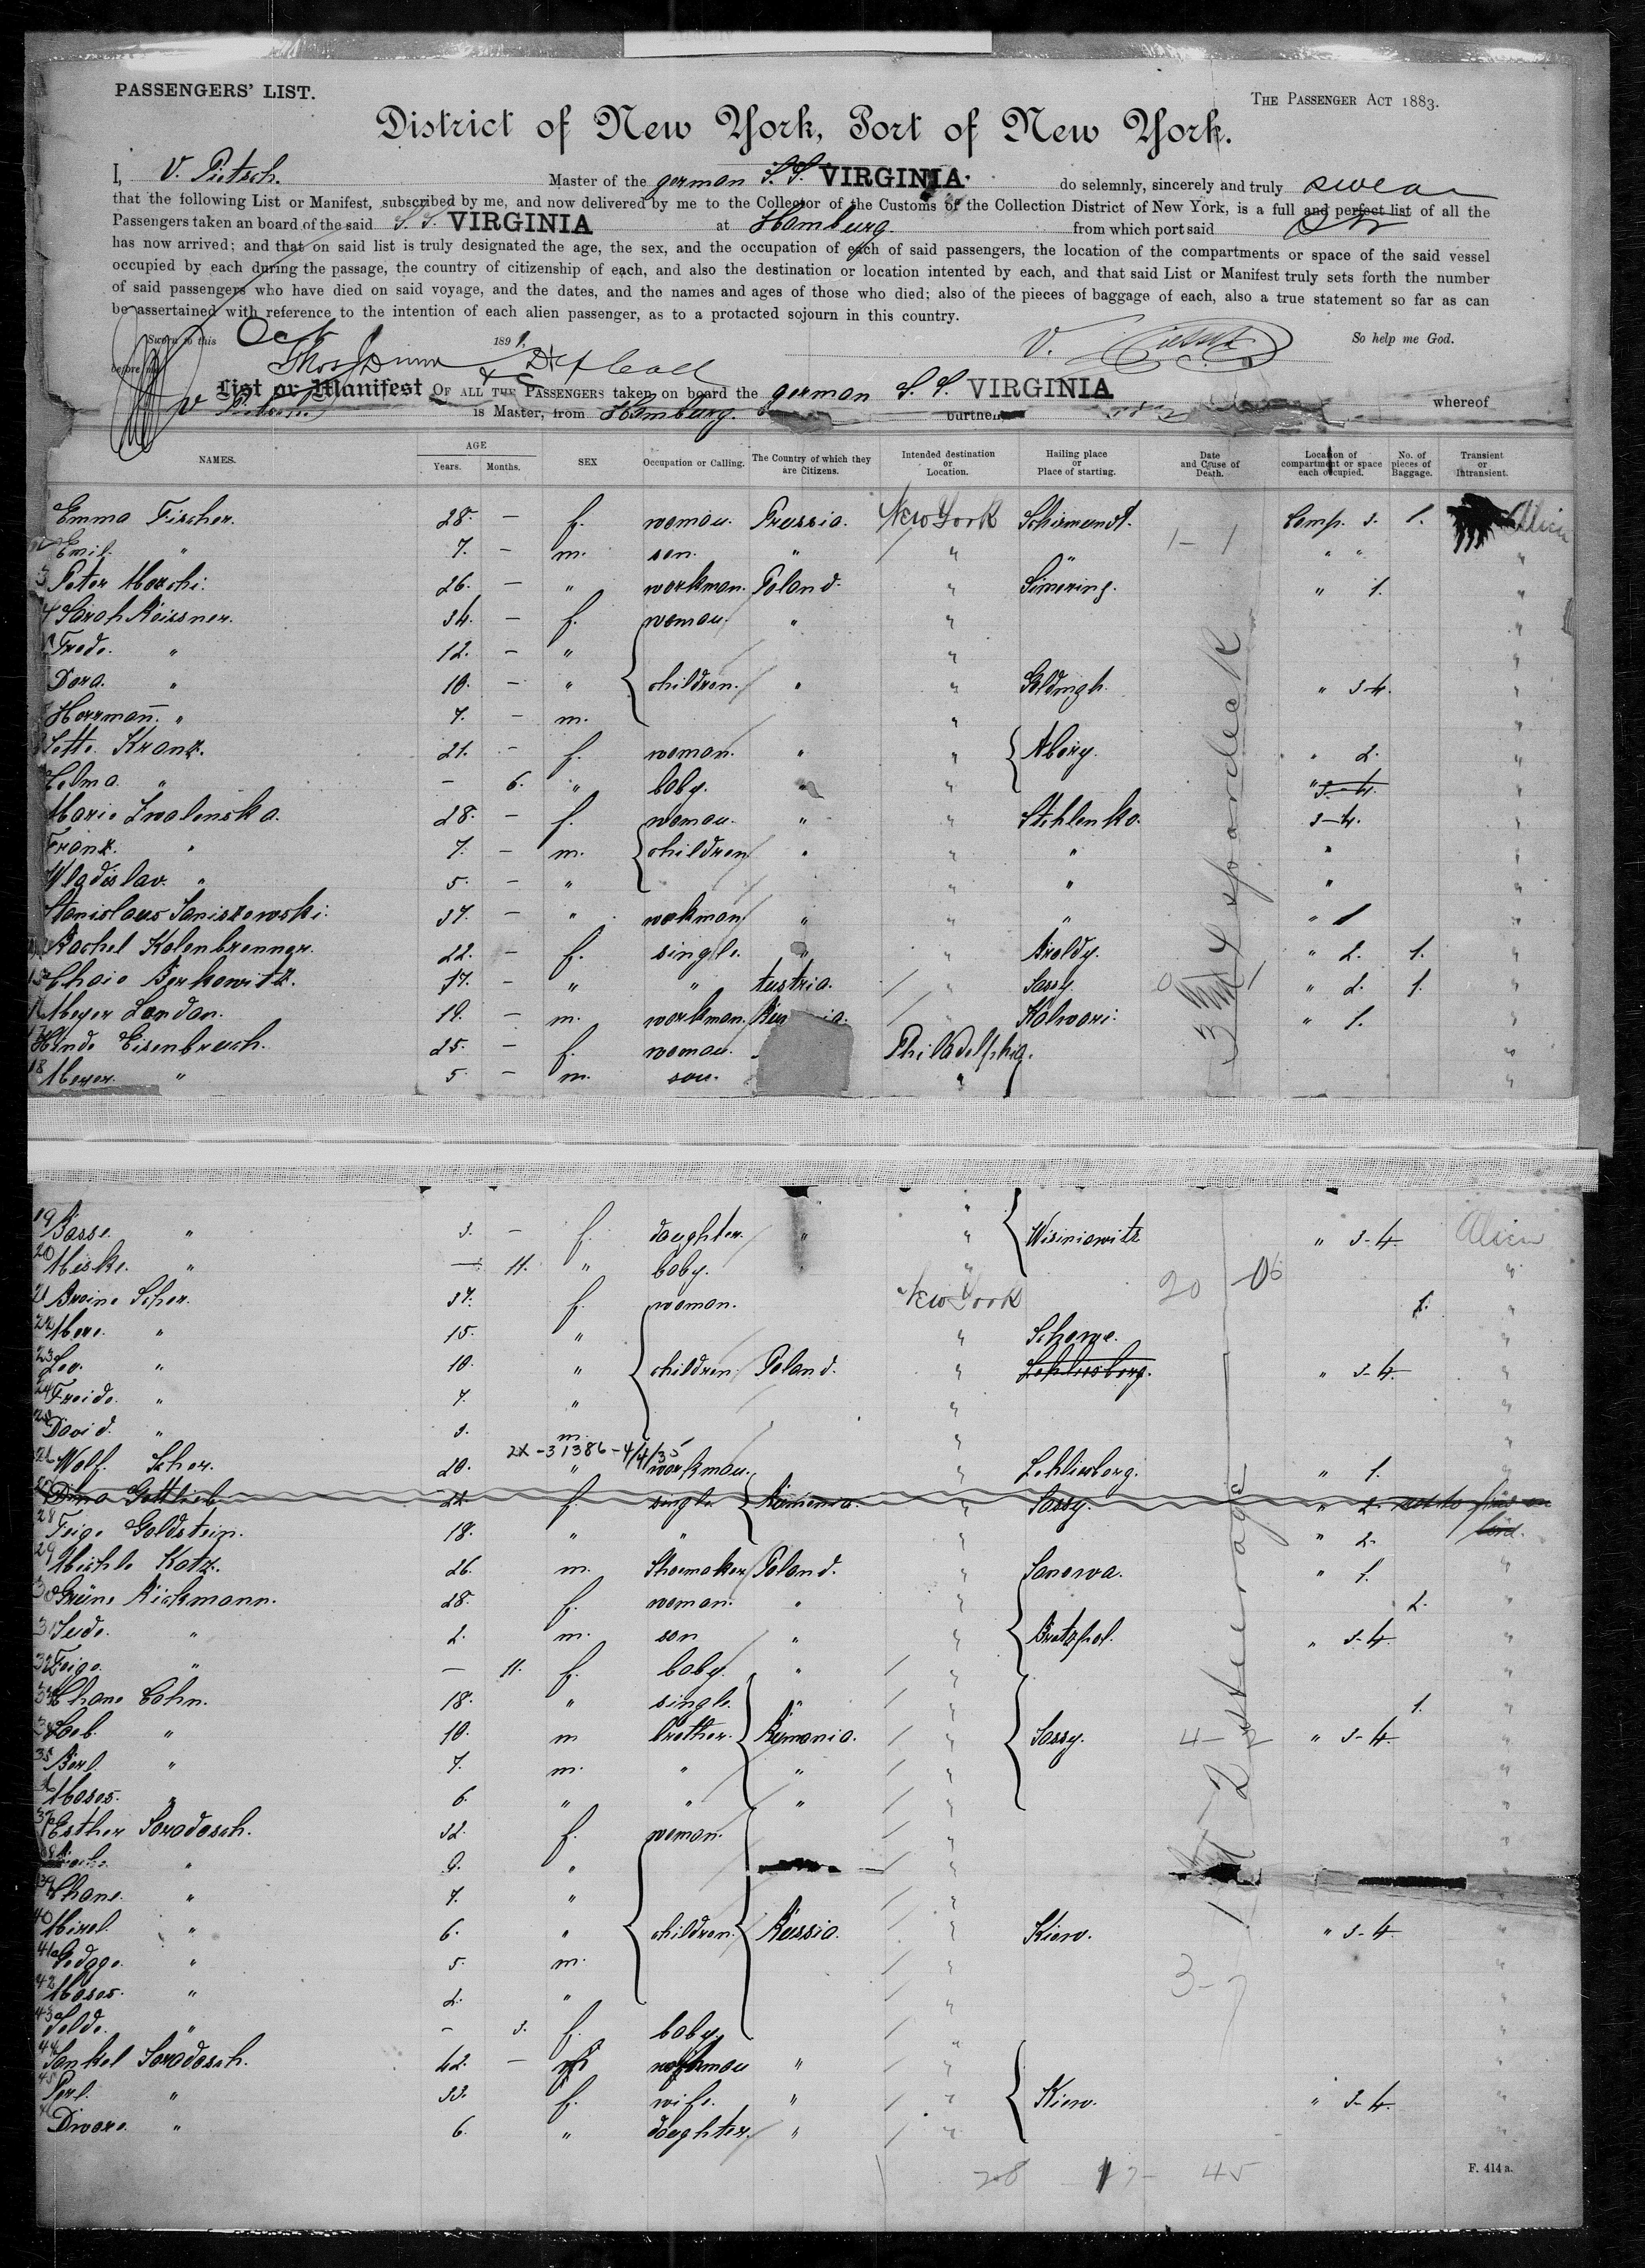 PASSENGERS' LIST.
THE PASSENGER ACT 1883.
District of New York, Port of New York.
I, V. Pietsch. Master of the german S.S. VIRGINIA. do selemnly, sincerely and truly swear
that the following List or Manifest, subscribed by me, and now delivered by me to the Collector of the Customs of the Collection District of New York, is a full and perfect list of all the
Passengers taken an board of the said S.S. VIRGINIA at Hamburg. from which port said
has now arrived; and that on said list is truly designated the age, the sex, and the occupation of each of said passengers, the location of the compartments or space of the said vessel
occupied by each during the passage, the country of citizenship of each, and also the destination or location intented by each, and that said List or Manifest truly sets forth the number
of said passengers who have died on said voyage, and the dates, and the names and ages of those who died; also of the pieces of baggage of each, also a true statement so far as can
be assertained with reference to the intention of each alien passenger, as to a protacted sojourn in this country.
Sworn to this Oct 1 1891. V. Pietsch So help me God.
before me
List or Manifest OF ALL THE PASSENGERS taken on board the german S.S. VIRGINIA whereof
V Pietsch is Master, from Hamburg. burthen
NAMES. AGE Years. Months. SEX Occupation or Calling. The Country of which they are Citizens. Intended destination or Location. Hailing place or Place of starting. Date and Cause of Death. Location of compartment or space each occupied. No. of pieces of Baggage. Transient or Intransient.
Emma Fischer. 28. — f. woman. Prussia. New York Schirmundt. Comp. 3. 1. Alien
Emil. " 7. — m. son. " " " 1-1 " " "
3 Peter Morschi. 26. — " workman. Poland. " Simering. " 1. "
4 Sarah Reissner. 34. — f. woman. " " "
Frede. " 12. — " " "
Dora. " 10. — " children. " " Goldingh. " 3-4. "
Herrmann. " 7. — m. " "
Sette Kranz. 21. — f. woman. " " Abery. " 2. "
Selma. " — 6. " baby. " " " 3-4. "
Marie Zwalenska. 28. — f. woman. " " Stehlenko. 3-4. "
Frank. " 7. — m. children " " " " "
Wladislav. " 5. — " " " " "
Stanislaus Saniszowski. 37. — " workman " " " " 1 "
Rachel Kolenbrenner. 22. — f. single. " " Broldy. " 2. 1. "
15 Chaie Berkowitz. 17. — " " Austria. " Sassy. " 2. 1. "
Meyer Landau. 19. — m. workman. " Kalwari. " 1. "
17 Hinde Eisenbruch. 25. — f. woman. Philadelphia. "
18 Meyer. " 5. — m. son. " "
19 Basse. " 3. — f. daughter. " " Wisiniowitz " 3-4. Alien
20 Miske. " — 11. " baby. " "
21 Breine Scher. 37. f. woman. New York 20 1. "
22 Mere. " 15. " " Schome. "
23 Lea. " 10. " children. Poland. " Lehliesberg. " 3-4. "
24 Freide. " 7. " " "
25 David. " 3. m. " "
2X-31386-4/4/35
26 Wolf. Scher. 20. " workman. " Lehliesberg. " 1. "
Dina Gottlieb 22. f. single Rumenia. " Sassy. " 2.
28 Feige Goldstein. 18. " " " " 2.
29 Michle Katz. 26. m. Shoemaker Poland. " Sanorva. " 1. "
30 Grüne Rickmann. 28. f. woman. " " 2. "
31 Jude. " 2. m. son " " " 3-4. "
32 Feige. " — 11. f. baby. " " "
33 Chane Cohn. 18. " single. " " 1. "
34 Loeb. " 10. m brother. Rumania. " Sassy. " 3-4. "
35 Berl. " 7. m. " " " "
Moses. " 6. " " " " "
37 Esther Saradasch. 32. f. woman. " "
" 9. " " "
39 Chane. " 7. " " "
40 Mirel. " 6. " children. Russia. " Kiew. " 3-4. "
41 " 5. m. " "
42 Moses. " 2. " " "
43 Selde. " — 3. f. baby. " "
44 Jankel Saradasch. 42. — workman " " "
45 Perl. " 33. f. wife. " " Kiew. " 3-4. "
Dwore. " 6. " daughter. " " "
45
F. 414 a.